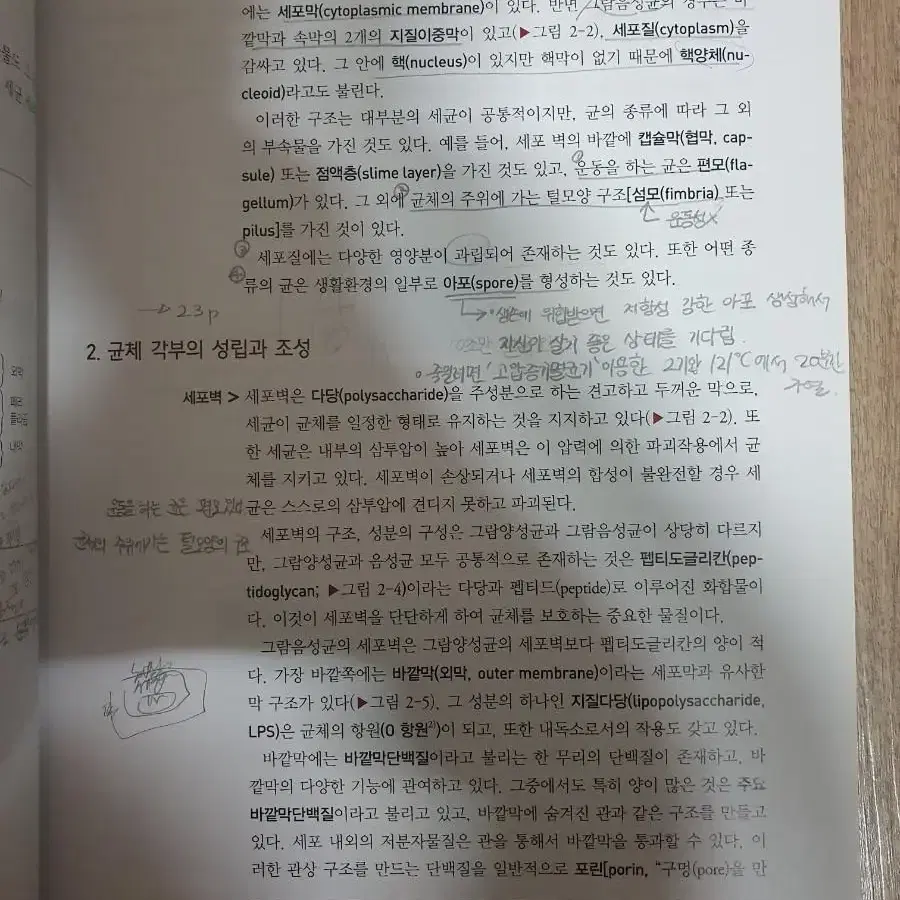 에는 세포막(cytoplasmic membrane)이 있다. 반면 그람음성균의 경우는 바
깥막과 속막의 2개의 지질이중막이 있고(▶그림 2-2), 세포질(cytoplasm)을
감싸고 있다. 그 안에 핵(nucleus)이 있지만 핵막이 없기 때문에 핵양체(nu-
cleoid)라고도 불린다.
이러한 구조는 대부분의 세균이 공통적이지만, 균의 종류에 따라 그 외
의 부속물을 가진 것도 있다. 예를 들어, 세포 벽의 바깥에 캡슐막(협막, cap-
sule) 또는 점액층(slime layer)을 가진 것도 있고, 운동을 하는 균은 편모(fla-
gellum)가 있다. 그 외에 균체의 주위에 가는 털모양 구조[섬모(fimbria) 또는
운동성X
pilus]를 가진 것이 있다.
③ 세포질에는 다양한 영양분이 과립되어 존재하는 것도 있다. 또한 어떤 종
④ 류의 균은 생활환경의 일부로 아포(spore)를 형성하는 것도 있다.
→ 23p
생존에 위협받으면 저항성 강한 아포 생성해서
자신이 살기 좋은 상태를 기다림.
2. 균체 각부의 성립과 조성
'고압증기멸균기' 이용한 2기압 121℃에서 20분간
세포벽 > 세포벽은 다당(polysaccharide)을 주성분으로 하는 견고하고 두꺼운 막으로,
세균이 균체를 일정한 형태로 유지하는 것을 지지하고 있다(▶그림 2-2). 또
한 세균은 내부의 삼투압이 높아 세포벽은 이 압력에 의한 파괴작용에서 균
체를 지키고 있다. 세포벽이 손상되거나 세포벽의 합성이 불완전할 경우 세
균은 스스로의 삼투압에 견디지 못하고 파괴된다.
운동을 하는 균은 편모있다
세포벽의 구조, 성분의 구성은 그람양성균과 그람음성균이 상당히 다르지
털모양의 균
만, 그람양성균과 음성균 모두 공통적으로 존재하는 것은 펩티도글리칸(pep-
tidoglycan; ▶그림 2-4)이라는 다당과 펩티드(peptide)로 이루어진 화합물이
다. 이것이 세포벽을 단단하게 하여 균체를 보호하는 중요한 물질이다.
그람음성균의 세포벽은 그람양성균의 세포벽보다 펩티도글리칸의 양이 적
다. 가장 바깥쪽에는 바깥막(외막, outer membrane)이라는 세포막과 유사한
막 구조가 있다(▶그림 2-5). 그 성분의 하나인 지질다당(lipopolysaccharide,
LPS)은 균체의 항원(O 항원²⁾)이 되고, 또한 내독소로서의 작용도 갖고 있다.
바깥막에는 바깥막단백질이라고 불리는 한 무리의 단백질이 존재하고, 바
깥막의 다양한 기능에 관여하고 있다. 그중에서도 특히 양이 많은 것은 주요
바깥막단백질이라고 불리고 있고, 바깥막에 숨겨진 관과 같은 구조를 만들고
있다. 세포 내외의 저분자물질은 관을 통해서 바깥막을 통과할 수 있다. 이
러한 관상 구조를 만드는 단백질을 일반적으로 포린[porin, “구멍(pore)을 만